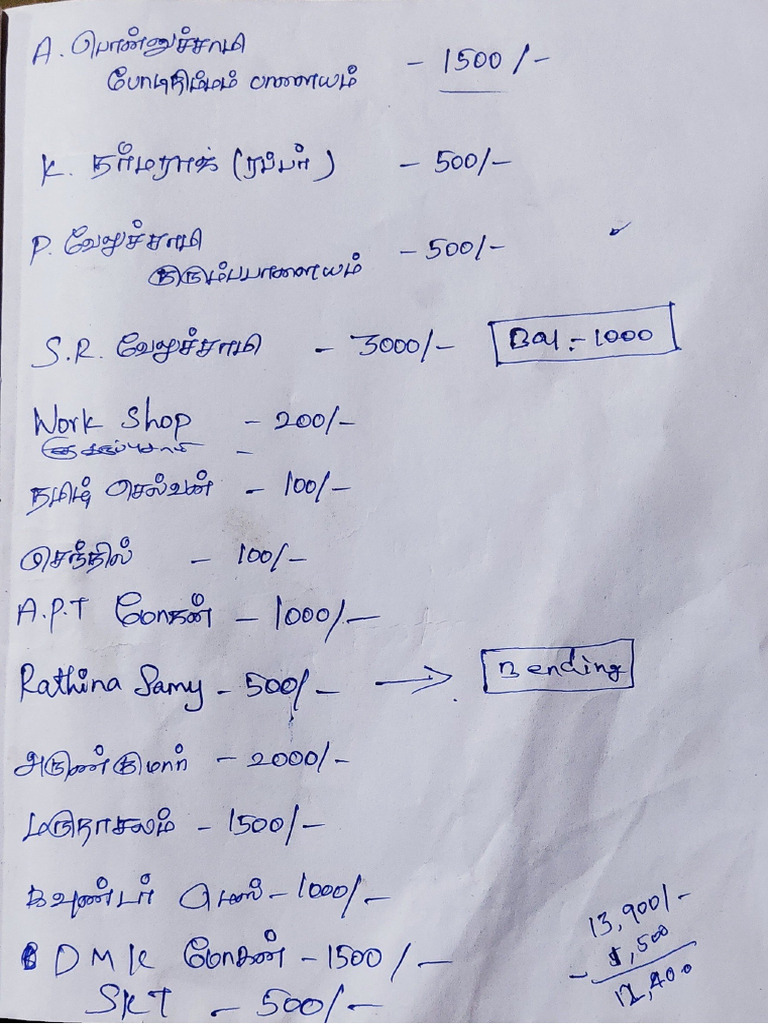 A. பொன்னுச்சாமி - 1500/-
போடிநிம்மம் பாளையம்
K. தர்மராஜ் (ரப்பர்) - 500/-
P. வேலுச்சாமி - 500/-
குரும்பபாளையம்
S.R. வேலுச்சாமி - 3000/- Bal :- 1000
Work Shop - 200/-
தமிழ் செல்வன் - 100/-
செந்தில் - 100/-
A.P.T மோகன் - 1000/-
Rathina Samy - 500/- → Bending
அருண்குமார் - 2000/-
மருதாசலம் - 1500/-
கவுண்டர் - 1000/-
DMK மோகன் - 1500/-
SKT - 500/-
13,900/-
- 1,500
12,400